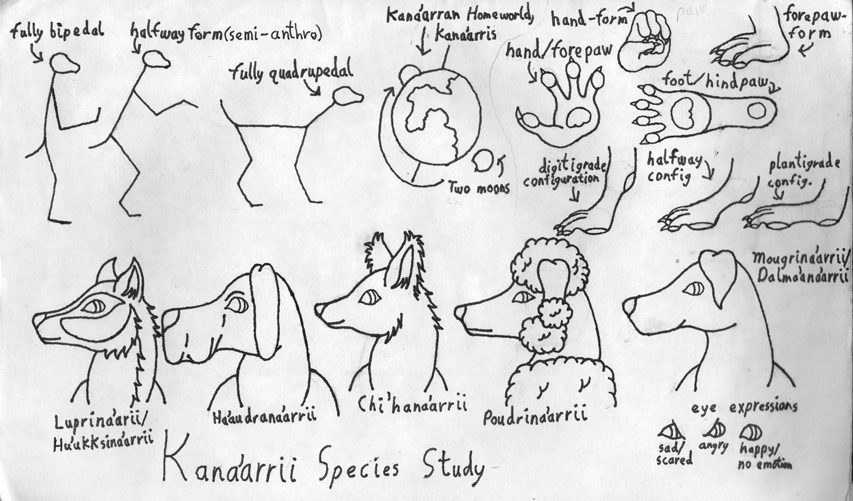 fully bipedal
halfway form (semi-anthro)
fully quadrupedal
Kana'arran Homeworld,
Kana'arris
Two moons
hand-form
paw
forepaw-
form
hand/forepaw
foot/hindpaw
digitigrade
configuration
halfway
config
plantigrade
config.
Luprina'arii/
Hu'ukksina'arrii
Ha'audrana'arrii
Chi'hana'arrii
Poudrina'arrii
Mougrina'arrii/
Dalma'ana'arrii
eye expressions
sad/
scared
angry
happy/
no emotion
Kana'arrii Species Study